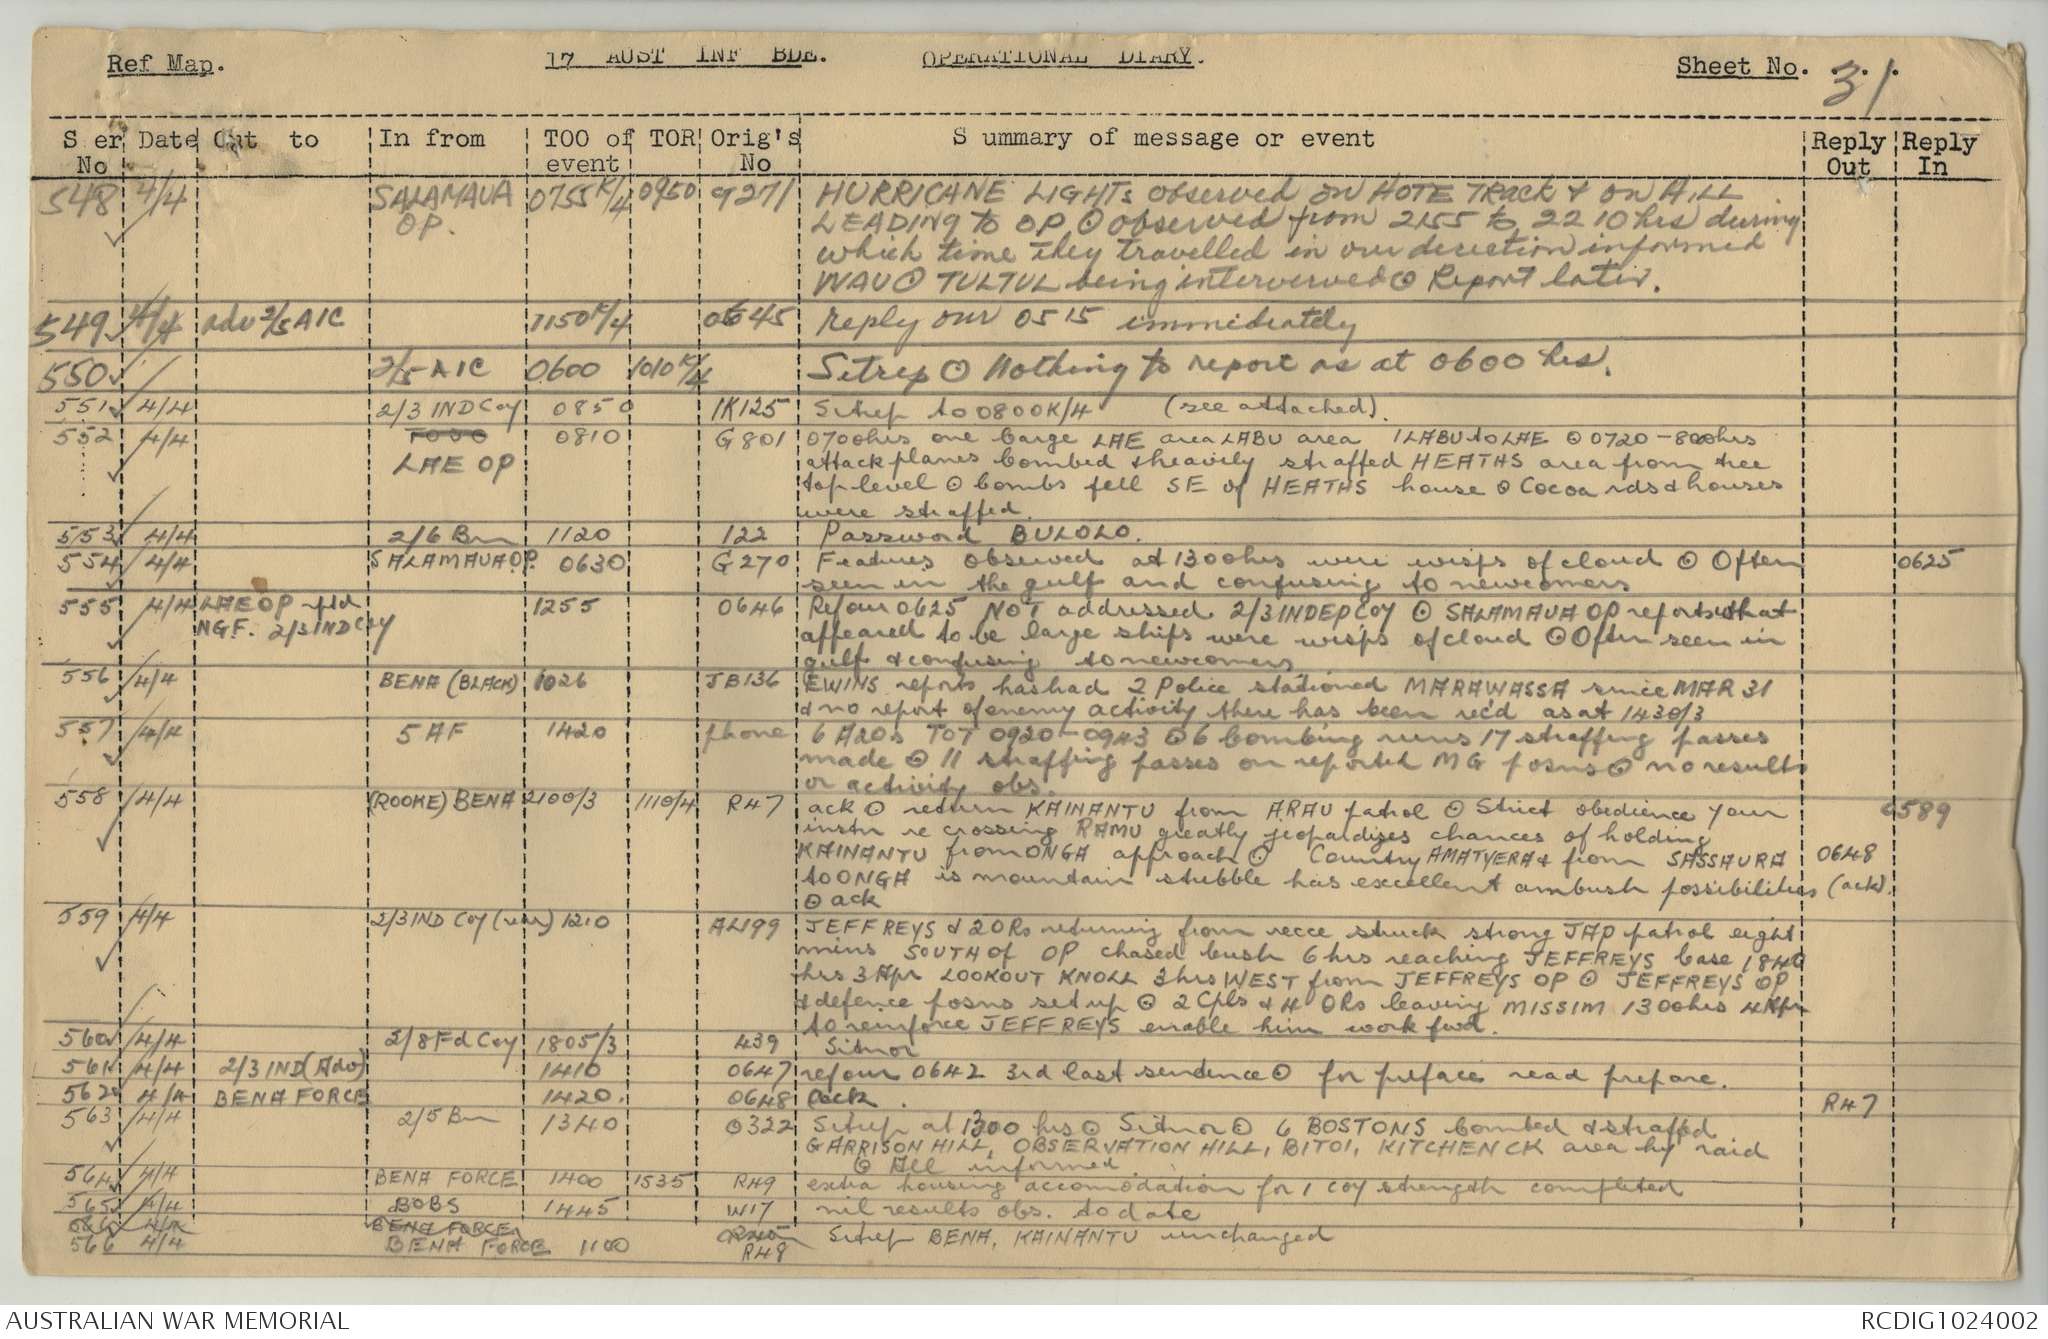 Ref Map. 17 AUST INF BDE. OPERATIONAL DIARY. Sheet No. 31
Ser No Date Out to In from TOO of event TOR Orig's No Summary of message or event Reply Out Reply In
548 4/4 SALAMAUA OP. 0755K/4 0950 G271 HURRICANE LIGHTs observed on HOTE TRACK & on HILL
LEADING to OP ⊙ observed from 2155 to 2210 hrs during
which time they travelled in our direction informed
WAU ⊙ TULTUL being interverved ⊙ Report later.
549 4/4 adv 2/5 AIC 1150K/4 0645 reply our 0515 immediately
550 2/5 AIC 0600 1010K/4 Sitrep ⊙ Nothing to report as at 0600 hrs.
551 4/4 2/3 IND Coy 0850 1K125 Sitrep to 0800K/4 (see attached).
552 4/4 LAE OP 0810 G801 0700hrs one barge LAE area LABU area 1 LABU to LAE ⊙ 0720-800hrs
attack planes bombed & heavily straffed HEATHS area from tree
top level ⊙ bombs fell SE of HEATHS house ⊙ Cocoa rds & houses
were straffed.
553 4/4 2/6 Bn 1120 122 Password BULOLO.
554 4/4 SALAMAUA O.P. 0630 G270 Features observed at 1300hrs were wisps of cloud ⊙ Often 0625
seen in the gulf and confusing to newcomers
555 4/4 LAE OP rptd NGF. 2/3 IND Coy 1255 0646 Refour 0625 NOT addressed 2/3 INDEP Coy ⊙ SALAMAUA OP reports what
appeared to be large ships were wisps of cloud ⊙ Often seen in
gulf & confusing to newcomers
556 4/4 BENA (BLACK) 1026 JB136 EWINS reports has had 2 Police stationed MARAWASSA since MAR 31
& no report of enemy activity there has been rec'd as at 1430/3
557 4/4 5 AF 1420 phone 6 A20s TOT 0920-0943 ⊙ 6 bombing runs 17 straffing passes
made ⊙ 11 straffing passes on reported MG posns ⊙ no results
or activity obs.
558 4/4 (ROOKE) BENA 2100/3 1110/4 R47 ack ⊙ return KAINANTU from ARAU patrol ⊙ Strict obedience your 0589
instn re crossing RAMU greatly jeopardizes chances of holding
KAINANTU from ONGA approach ⊙ Country AMATYERA & from SASSAURA 0648
to ONGA is mountain stubble has excellent ambush possibilities (ack).
⊙ ack
559 4/4 2/3 IND Coy (rear) 1210 AL199 JEFFREYS & 2 ORs returning from recce struck strong JAP patrol eight
mins SOUTH of OP chased bush 6 hrs reaching JEFFREYS base 1840
hrs 3 Apr LOOKOUT KNOLL 3 hrs WEST from JEFFREYS OP ⊙ JEFFREYS OP
& defence posns set up ⊙ 2 Cpls & 4 ORs leaving MISSIM 1300hrs 4 Apr
to reinforce JEFFREYS enable him work fwd.
560 4/4 2/8 Fd Coy 1805/3 439 Sitnor
561 4/4 2/3 IND (Adv) 1410 0647 refour 0642 3rd last sentence ⊙ for preface read prepare.
562 4/4 BENA FORCE 1420. 0648 ack. R47
563 4/4 2/5 Bn 1340 0322 Sitrep at 1300 hrs ⊙ Sitnor ⊙ 6 BOSTONS bombed & straffed
GARRISON HILL, OBSERVATION HILL, BITOI, KITCHEN CK area by raid
⊙ All informed.
564 4/4 BENA FORCE 1400 1535 R49 extra housing accomodation for 1 coy strength completed
565 4/4 BOBS 1445 W17 nil results obs. to date
566 4/4 BENA FORCE R45
566 4/4 BENA FORCE 1100 R48 Sitrep BENA, KAINANTU unchanged
AUSTRALIAN WAR MEMORIAL RCDIG1024002